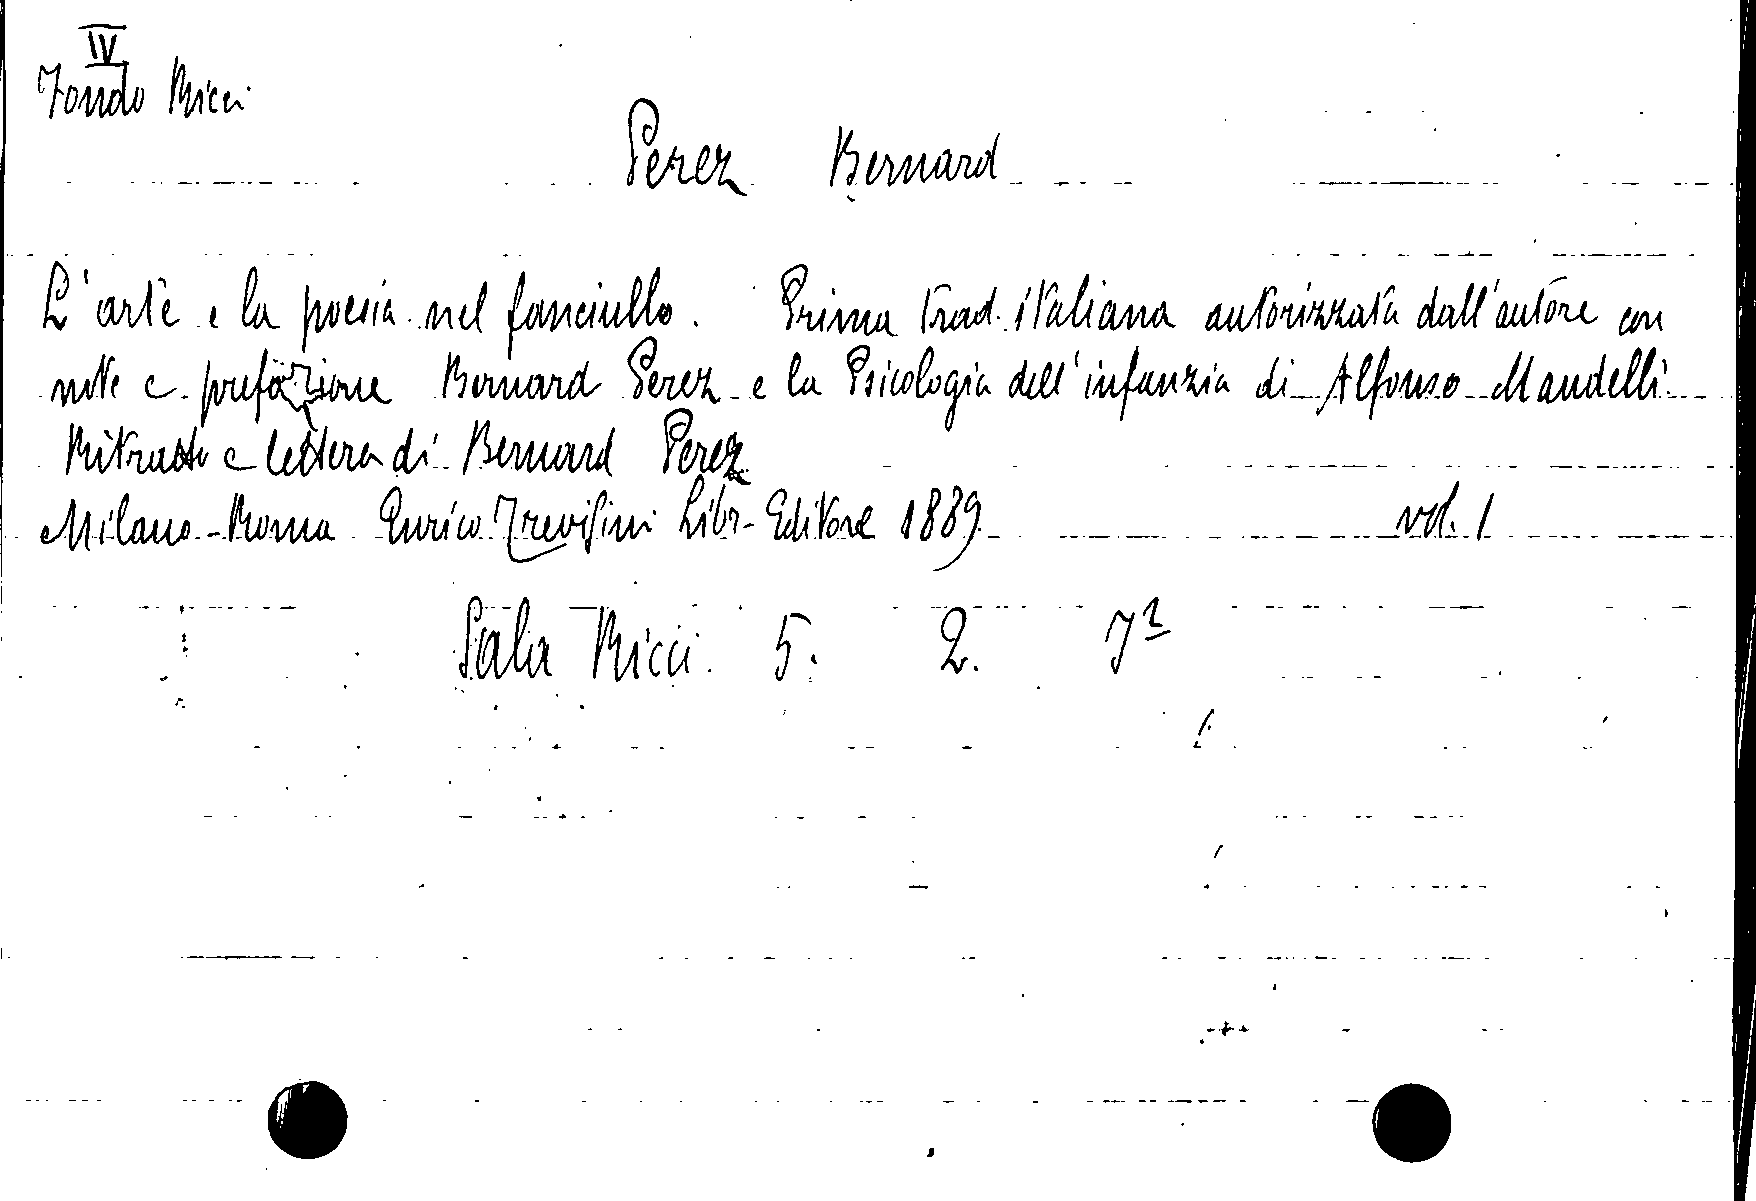 IV
Fondo Ricci
Perez Bernard
L'arte e la poesia nel fanciullo. Prima trad. italiana autorizzata dall'autore con
note e prefazione Bernard Perez e la Psicologia dell'infanzia di Alfonso Mandelli.
Ritratto e lettera di Bernard Perez
Milano-Roma Enrico Trevisini Libr-Editore 1889 vol. 1
Sala Ricci. 5. 2.